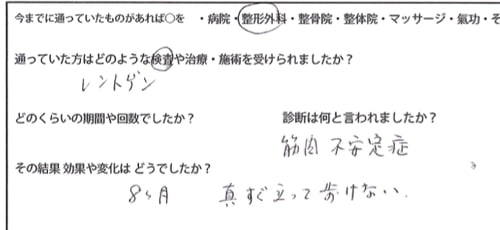 今までに通っていたものがあれば○を ・病院・整形外科・整骨院・整体院・マッサージ・氣功・そ
通っていた方はどのような検査や治療・施術を受けられましたか?
レントゲン
どのくらいの期間や回数でしたか? 診断は何と言われましたか?
筋肉 不安定症
その結果 効果や変化は どうでしたか?
8ヶ月 真すぐ立って歩けない.